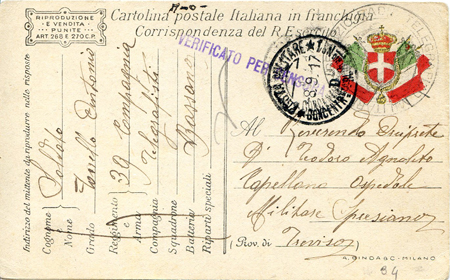 RIPRODUZIONE
E VENDITA
PUNITE
ART. 268 E 270 C.P.
Cartolina postale Italiana in franchigia
Corrispondenza del R. Esercito
VERIFICATO PER CENSURA
POSTA MILITARE
8.9.17
Indirizzo del mittente da riprodurre nelle risposte
Cognome
Nome
Grado
Reggimento
e
Arma
Compagnia
Squadrone
Batteria
Riparti speciali
Soldato
Antonio
39 Compagnia
Telegrafisti
Bassano
Al Reverendo Arciprete
D. Teodoro Agnoletto
Cappellano Ospedale
Militare
(Prov. di Treviso)
A. BINDA & C. - MILANO
84